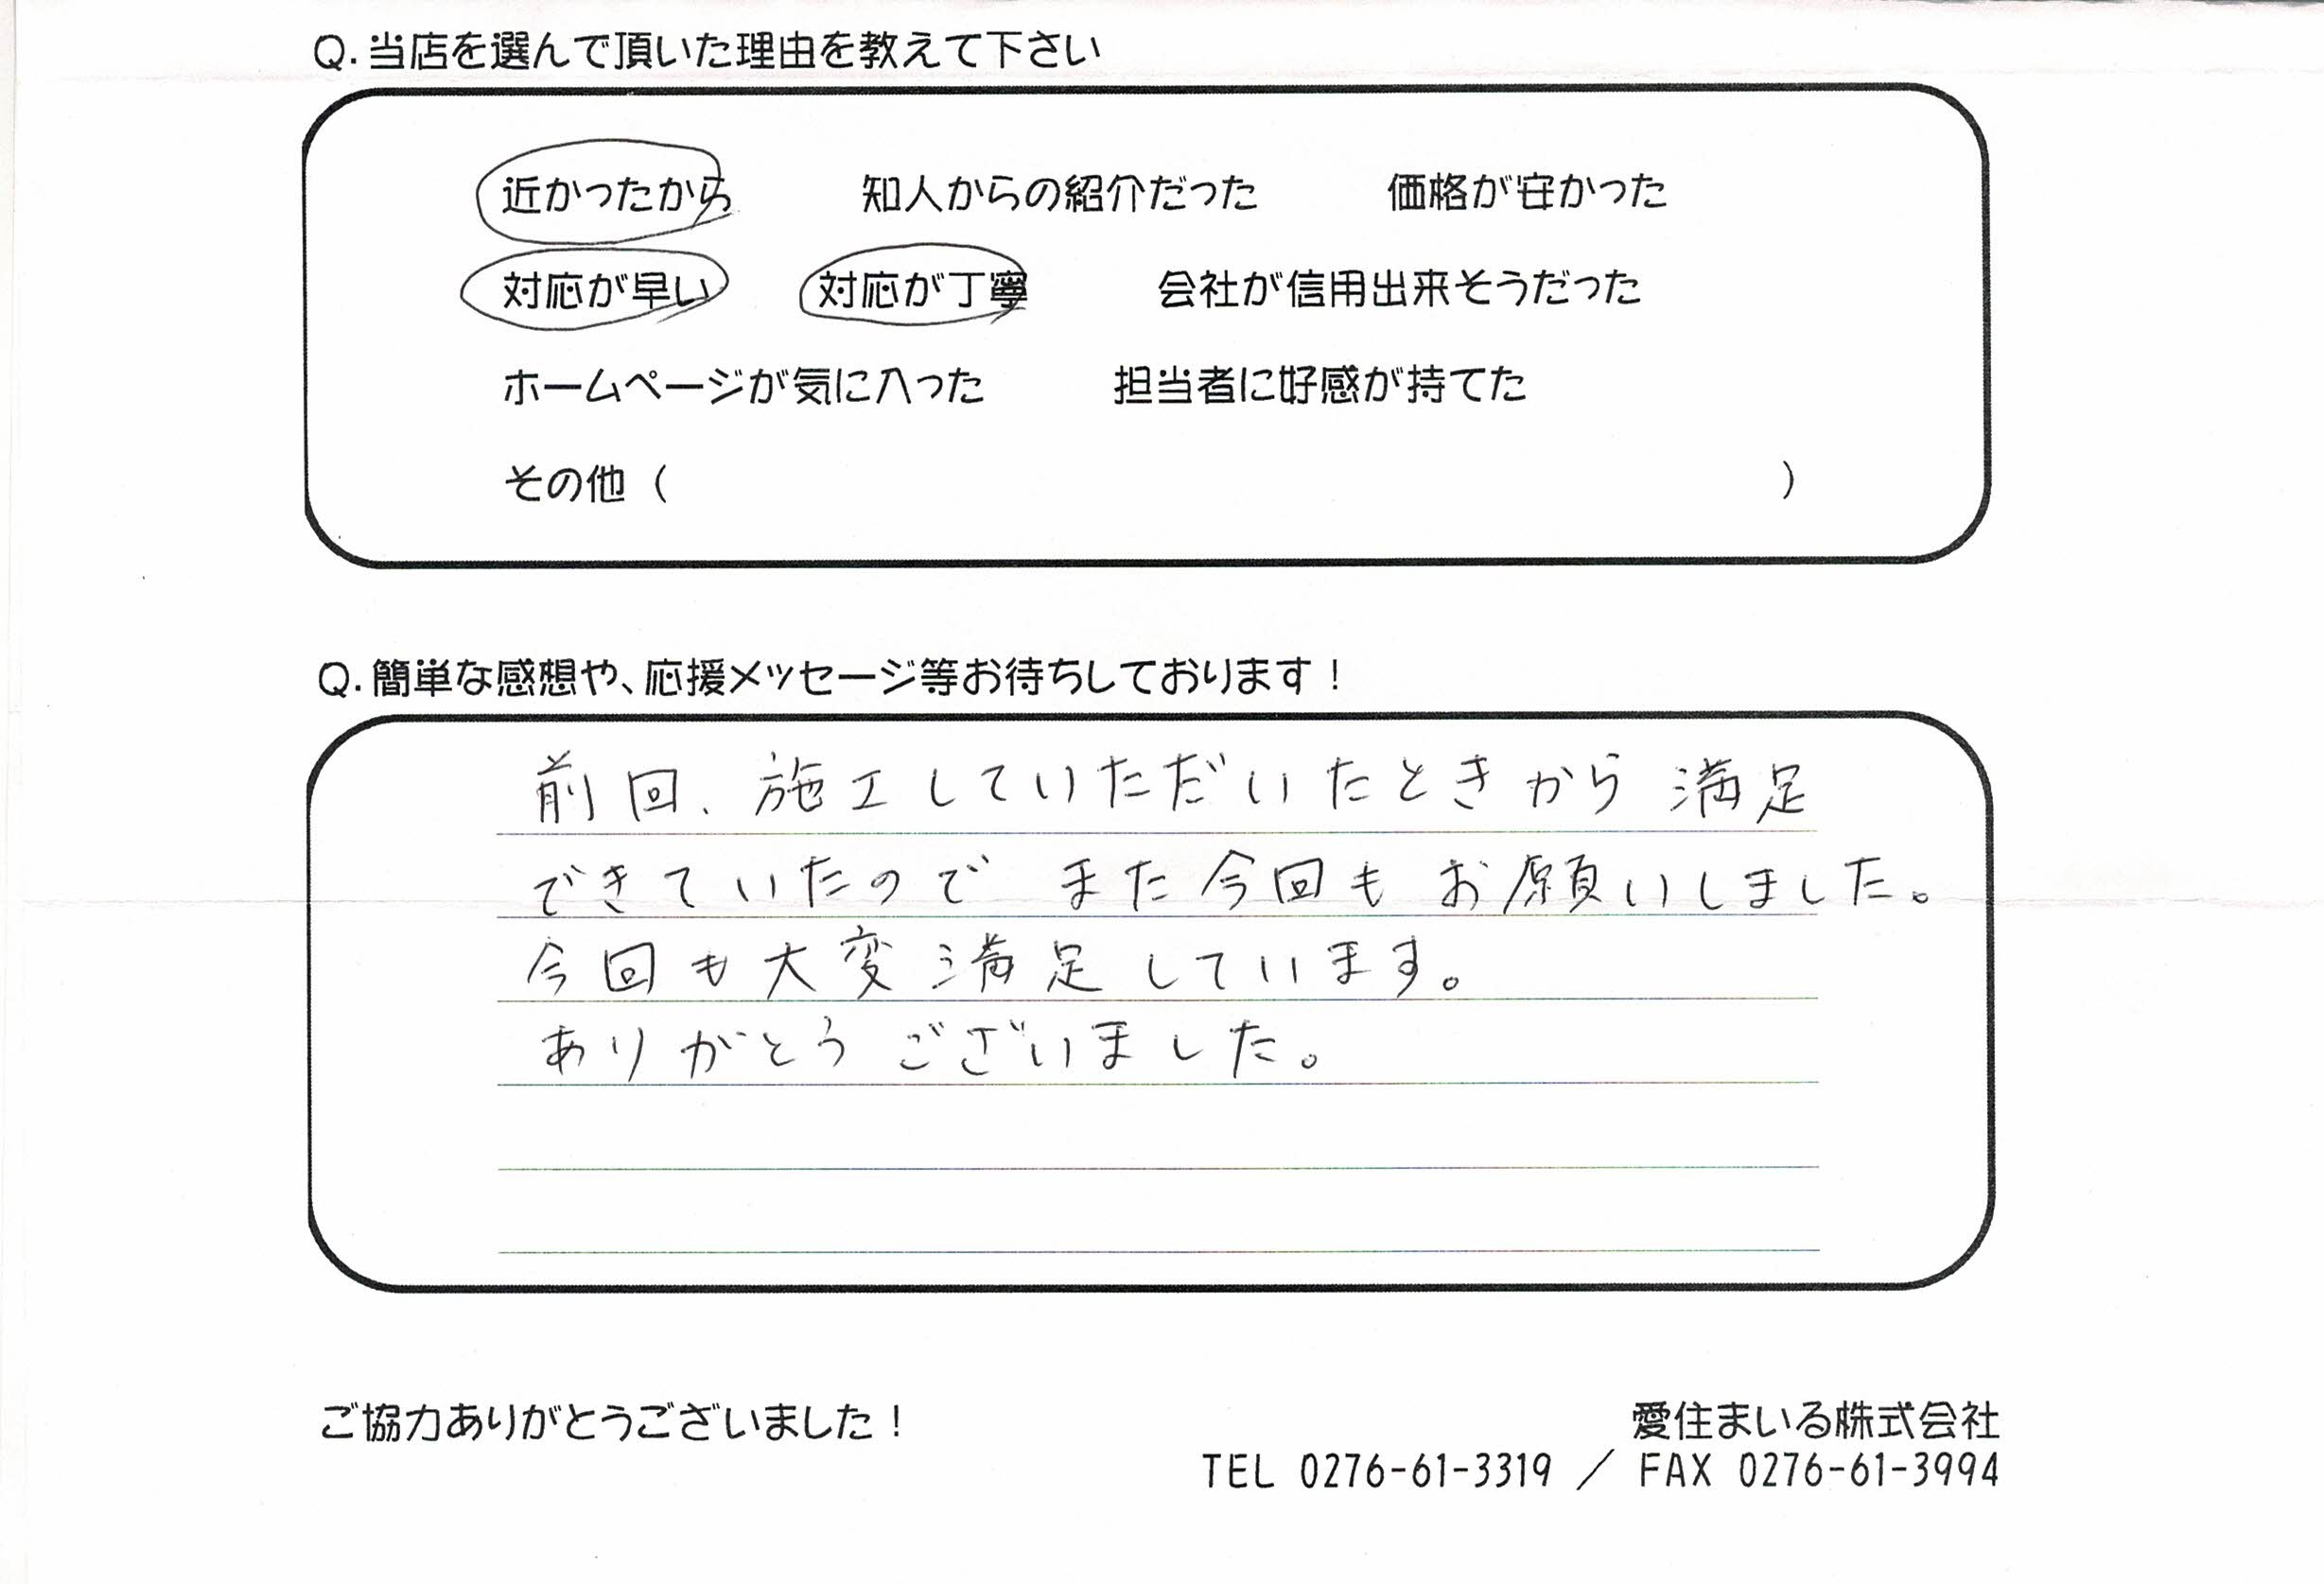 Q.当店を選んで頂いた理由を教えて下さい
近かったから 知人からの紹介だった 価格が安かった
対応が早い 対応が丁寧 会社が信用出来そうだった
ホームページが気に入った 担当者に好感が持てた
その他（ ）
Q.簡単な感想や、応援メッセージ等お待ちしております！
前回、施工していただいたときから満足
できていたので また今回も お願いしました。
今回も大変満足しています。
ありがとうございました。
ご協力ありがとうございました！
愛住まいる株式会社
TEL 0276-61-3319 ／ FAX 0276-61-3994